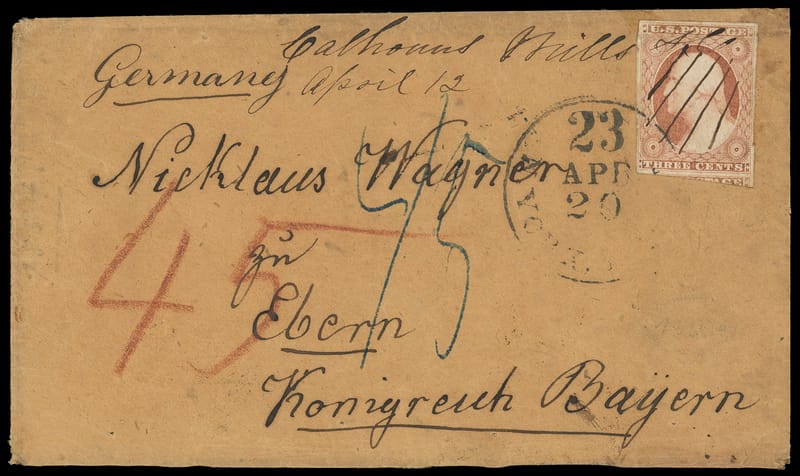 Calhouns Mills
Germany April 12
U.S. POSTAGE
THREE CENTS
23
APR
20
Nicklaus Wagner
45
45
zu
Ebern
Konigreich Bayern